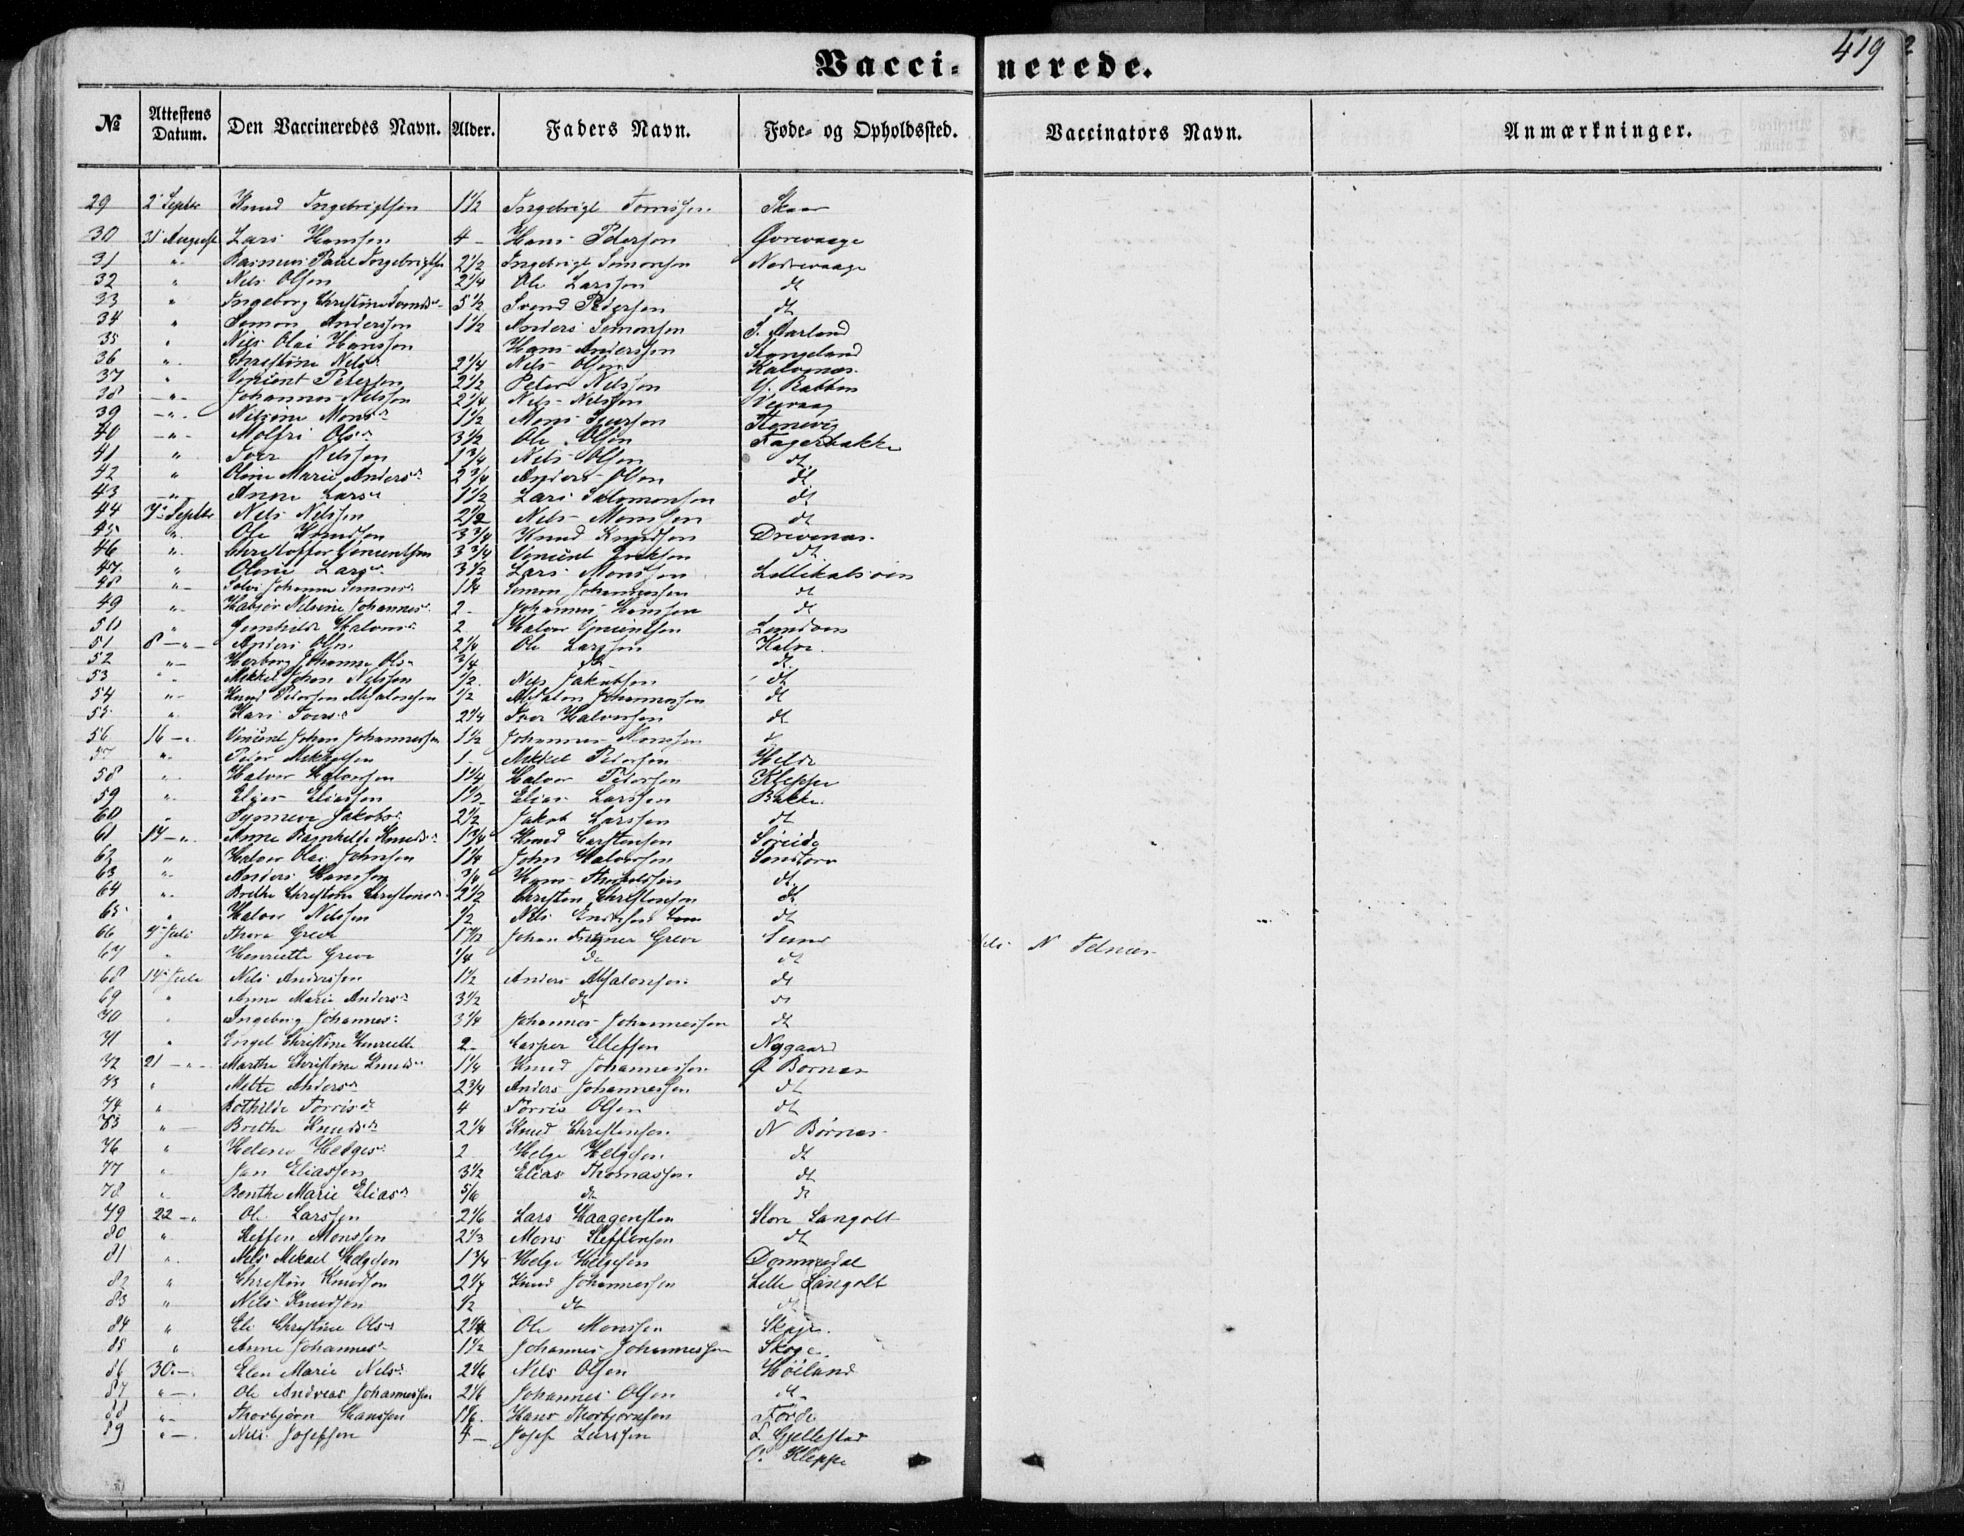 419
Vaccinerede.
№ Attestens Datum. Den Vaccineredes Navn. Alder. Faders Navn. Føde- og Opholdssted. Vaccinators Navn. Anmærkninger.
29 2 Septbr Knud Ingebrigtsen 1½ Ingebrigt Tornissen Skaar
30 31 August Lars Hansen 4 - Hans Peterson Øvrevaage
31 " Rasmus Paul Ingebrigtse 2½ Ingebrigt Simonsen Nedrevaage
32 " Nils Olsen 2¼ Ole Larssen dt
33 " Ingeborg Christine Svends 5½ Svend Pedersen dt
34 " Simon Anderssen 1½ Anders Simonsen S. Aarland
35 " Nils Olai Hanssen Hans Anderssen Stangeland
36 " Christine Nilsd 2¼ Nils Olsen Kalvenæs
37 " Vincent Petersen 2½ Peter Nilssen Y. Bakken
38 " Johannes Nilssen 2¼ Nils Nilssen
39 " Nilsine Monsd 1½ Mons Iversen
40 " Molfri Olsd 3½ Ole Olsen Fagerbakke
41 " Iver Nilssen 1¾ Nils Olsen dt
42 " Oline Marie Andersd 2¾ Anders Olsen dt
43 " Anne Larsd 1½ Lars Salomonsen dt
44 7 Septbr Nils Nilssen 2½ Nils Monssen dt
45 " Ole Knudsen 3¾ Knud Knudsen Drivenæs
46 " Christoffer Vincentsen 3¾ Vincent Eriksen dt
47 " Oline Larsd 3½ Lars Monssen
48 " Johanne Simonsd 1¼ Simon Johannessen dt
49 " Nilsine Johannesd 2 - Johannes Hanssen dt
50 " Gunhilde Halvorsd 2 Halvor Vincentsen
51 8 - " Anders Olsen 2¼ Ole Larssen
52 " Herborg Johanne Olsd ¾ dt dt
53 " Mikkel Johan Nilssen ½ Nils Jakobsen dt
54 " Knud Petersen Absalonsen ½ Absalon Johannessen dt
55 " Kari Iversd 2¼ Iver Halvorsen dt
56 16 - " Vincent Johan Johannessen 1½ Johannes Monssen
57 " Peter Mikkelsen 1 - Mikkel Petersen Hilde
58 " Halvor Halvorsen 1¼ Halvor Petersen Kleppe
59 " Elias Eliassen Elias Larssen Bakke
60 " Synneve Jakobsd 2½ Jakob Larssen dt
61 14 - " Anne Ragnhilde Knudsd 1¾ Knud Carstensen Søreide
62 " Halvor Olai Johnsen 1¼ John Halvorsen Sandtorv
63 " Anders Hanssen ¾ Hans dt
64 " Brethe Christine Christensd 2½ Christen Christensen dt
65 " Halvor Nilssen ½ Nils dt
66 7 Juli Thora Greve Johan Greve Lund N. Tednæs
67 " Henriette Greve ¼ dt dt
68 14 Juli Nils Anderssen 1½ Anders Absalonsen dt
69 " Anne Marie Andersd 3½ dt dt
70 " Ingeborg Johannesd 3¼ Johannes Johannessen dt
71 " Engel Christine Henriette 2 - Casper Ellefsen Nygaard
72 21 - " Marthe Christine Knudsd 1¼ Knud Johannessen Ø Børnæs
73 " Mette Andersd 2¾ Anders Johannessen dt
74 " Bothilde Torrisd 4 Torris Olsen dt
75 " Brethe Knudsd 2¼ Knud Christensen N Børnæs
76 " Helene Helgesd 2 Helge Helgesen dt
77 " Jan Eliassen 3½ Elias Thomassen dt
78 " Benthe Marie Eliasd 5/6 dt dt
79 22 - " Ole Larssen 2 1/6 Lars Haagensen Store Langolt
80 " Steffen Monssen 2 1/3 Mons Steffensen dt
81 " Nils Mikael Helgesen 1¾ Helge Helgesen Dommedal
82 " Christen Knudsen 2¼ Knud Johannessen Lille Langolt
83 " Nils Knudsen ½ dt dt
84 " Eli Christine Olsd 2¼ Ole Monssen Skoge
85 " Anne Johannesd 1½ Johannes Johannessen Skoge
86 30 - Elen Marie Nilsd 2 1/6 Nils Olsen Høiland
87 " - Ole Andreas Johannessen 2 1/6 Johannes Olsen dt
88 " Thorbjørn Hanssen 1 1/6 Hans Thorbjørnsen Førde
89 " - Nils Josefsen 4 - Josef Larssen L. Gjellestad
Kleppe